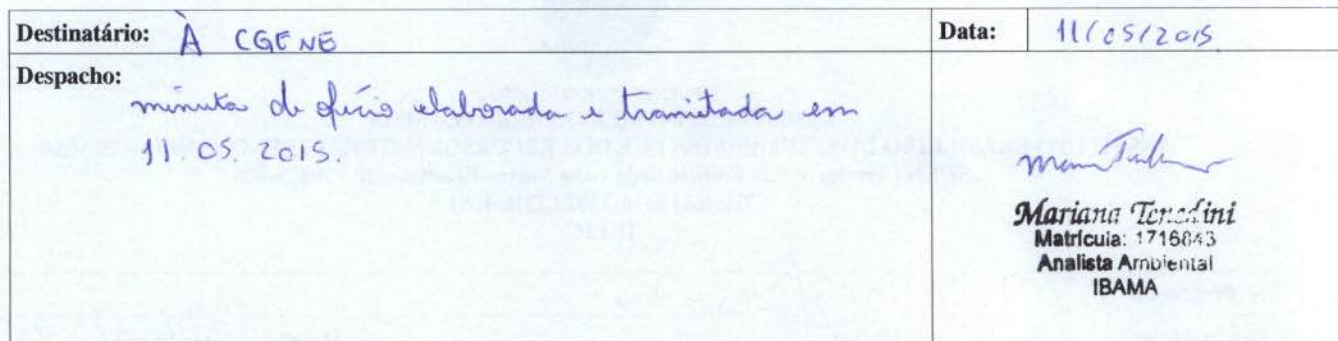 Destinatário: À CGENE Data: 11/05/2015
Despacho:
minuta de ofício elaborada e tramitada em
11.05.2015.
Mariana
Matrícula: 1716843
Analista Ambiental
IBAMA